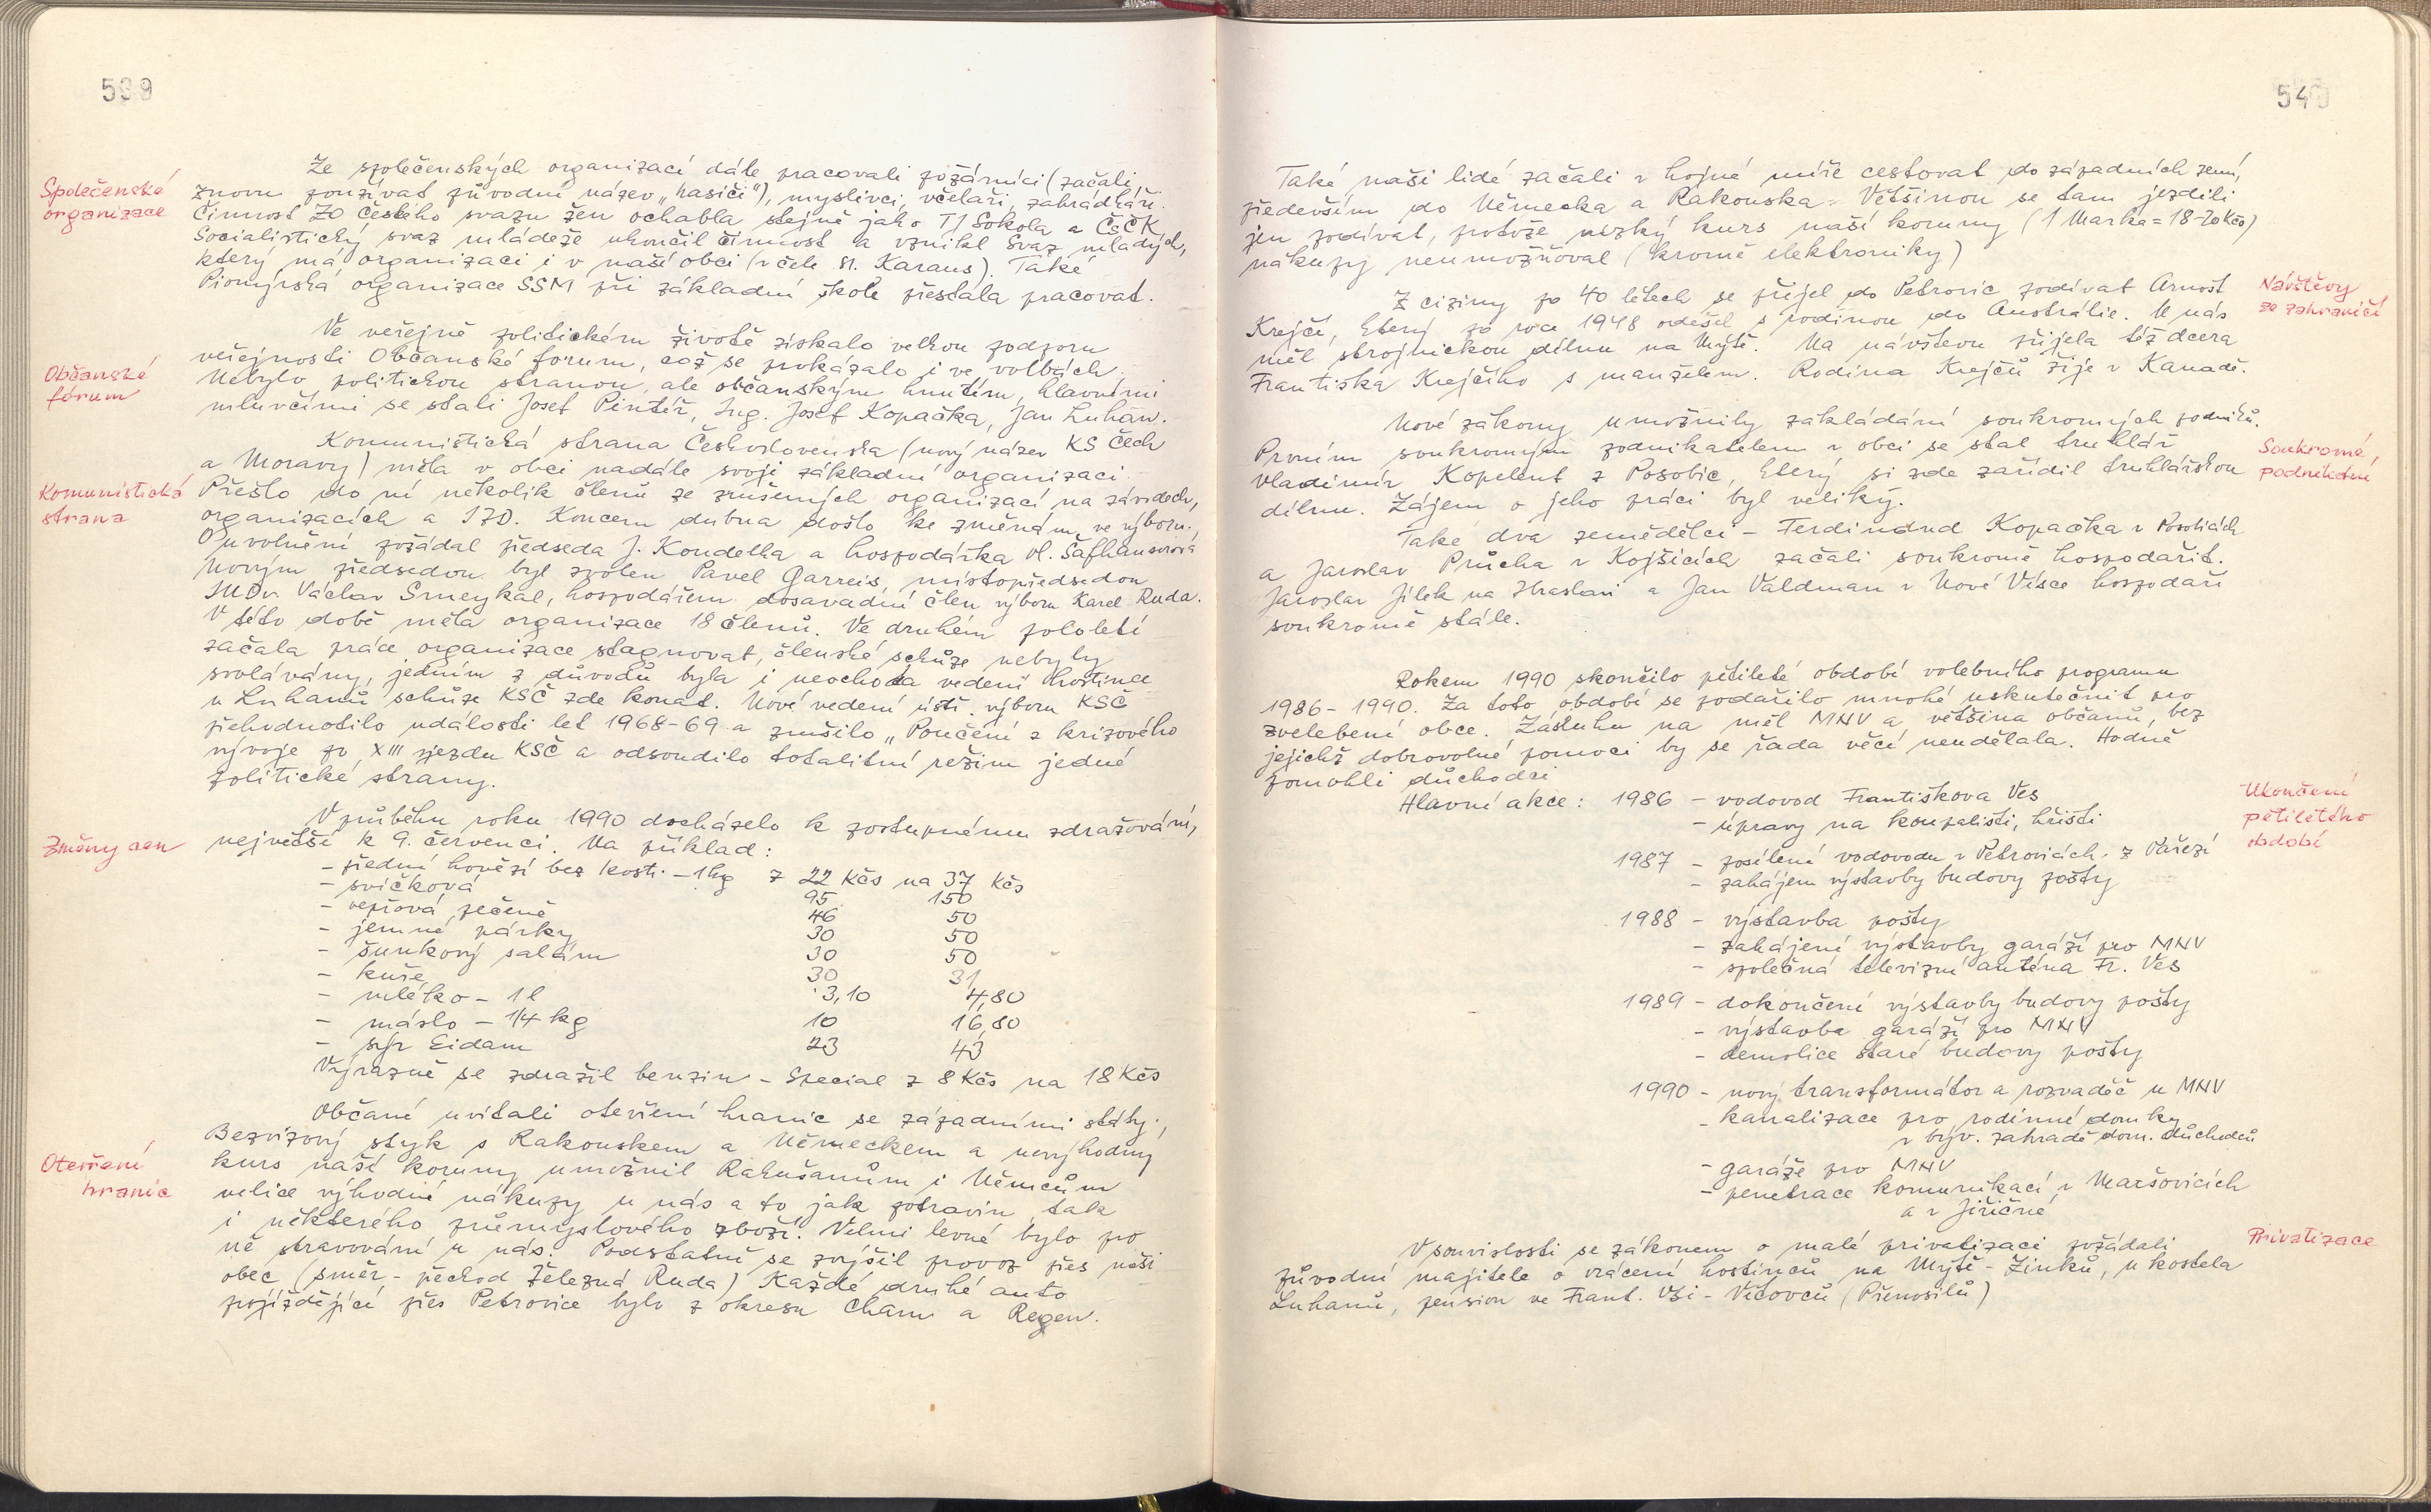 539
Společenské
organizace
Ze společenských organizací dále pracovali požárníci (začali
znovu používat původní název „hasiči"), myslivci, včelaři, zahrádkáři.
Činnost ZO Českého svazu žen ochabla stejně jako TJ Sokola a ČSČK
Socialistický svaz mládeže ukončil činnost a vznikl Svaz mladých,
který má organizaci i v naší obci (v čele st. Karaus). Také
Pionýrská organizace SSM při základní škole přestala pracovat.
Občanské
fórum
Ve veřejně politickém životě získalo velkou podporu
veřejnosti Občanské fórum, což se prokázalo i ve volbách.
Nebylo politickou stranou, ale občanským hnutím, hlavními
mluvčími se stali Josef Pintíř, Ing. Josef Kopačka, Jan Luhan.
Komunistická
strana
Komunistická strana Československa (nový název KS Čech
a Moravy) měla v obci nadále svoji základní organizaci.
Přešlo do ní několik členů ze zrušených organizací na závodech,
organizacích a JZD. Koncem dubna došlo ke změnám ve výboru.
O uvolnění požádal předseda J. Koudelka a hospodářka Vl. Šafhauserová
Novým předsedou byl zvolen Pavel Garreis, místopředsedou
MUDr Václav Smeykal, hospodářem dosavadní člen výboru Karel Ruda.
V této době měla organizace 18 členů. Ve druhém pololetí
začala práce organizace stagnovat, členské schůze nebyly
svolávány, jedním z důvodů byla i neochota vedení hostince
u Luhanů schůze KSČ zde konat. Nové vedení ústř. výboru KSČ
přehodnotilo události let 1968-69 a zrušilo „Poučení z krizového
vývoje po XIII sjezdu KSČ a odsoudilo totalitní režim jedné
politické strany.
Změny cen
V průběhu roku 1990 docházelo k postupnému zdražování,
největší k 9. červenci. Na příklad:
- přední hovězí bez kosti - 1kg z 22 Kčs na 37 Kčs
- svíčková 95 150
- vepřová pečeně 46 50
- jemné párky 30 50
- šunkový salám 30 50
- kuře 30 31
- mléko - 1 l 3,10 4,80
- máslo - 1/4 kg 10 16,80
- sýr Eidam 23 43
Výrazně se zdražil benzin - Special z 8 Kčs na 18 Kčs
Otevření
hranic
Občané uvítali otevření hranic se západními státy.
Bezvízový styk s Rakouskem a Německem a nevýhodný
kurs naší koruny umožnil Rakušanům i Němcům
velice výhodné nákupy u nás a to jak potravin tak
i některého průmyslového zboží. Velmi levné bylo pro
ně stravování u nás. Podstatně se zvýšil provoz přes naši
obec (směr - přechod Železná Ruda) Každé druhé auto
projíždějící přes Petrovice bylo z okresu Cham a Regen.
540
Také naši lidé začali v hojné míře cestovat do západních zemí,
především do Německa a Rakouska. Většinou se tam jezdili
jen podívat, protože nízký kurs naší koruny (1 Marka = 18-20 Kčs)
nákupy neumožňoval (kromě elektroniky)
Návštěvy
ze zahraničí
Z ciziny po 40 letech se přijel do Petrovic podívat Arnošt
Krejčí, který po roce 1948 odešel s rodinou do Austrálie. U nás
měl strojnickou dílnu na Mýtě. Na návštěvu přijela též dcera
Františka Krejčího s manželem. Rodina Krejčů žije v Kanadě.
Soukromé
podnikání
Nové zákony umožnily zakládání soukromých podniků.
Prvním soukromým podnikatelem v obci se stal truhlář
Vladimír Kopelent z Posobic, který si zde zařídil truhlářskou
dílnu. Zájem o jeho práci byl veliký.
Také dva zemědělci - Ferdinand Kopačka v Posobicích
a Jaroslav Průcha v Kojšicích začali soukromě hospodařit.
Jaroslav Jílek na Hrasku a Jan Valdman v Nové Vísce hospodaří
soukromě stále.
Rokem 1990 skončilo pětileté období volebního programu
1986-1990. Za toto období se podařilo mnohé uskutečnit pro
zvelebení obce. Zásluhu na měl MNV a většina občanů, bez
jejichž dobrovolné pomoci by se řada věcí neudělala. Hodně
pomohli důchodci
Ukončení
pětiletého
období
Hlavní akce: 1986 - vodovod Františkova Ves
- úpravy na koupališti, hřišti
1987 - posílení vodovodu v Petrovicích z Pařezí
- zahájení výstavby budovy pošty
1988 - výstavba pošty
- zahájení výstavby garáží pro MNV
- společná televizní anténa Fr. Ves
1989 - dokončení výstavby budovy pošty
- výstavba garáží pro MNV
- demolice staré budovy pošty
1990 - nový transformátor a rozvaděč u MNV
- kanalizace pro rodinné domky
v býv. zahradě dom. důchodců
- garáže pro MNV
- penetrace komunikací v Maršovicích
a v Jiřičné
Privatizace
V souvislosti se zákonem o malé privatizaci požádali
původní majitelé o vrácení hostinců na Mýtě - Zinků, u kostela
Luhanů, pension ve Frant. Vsi - Vítovců (Přenosilů)